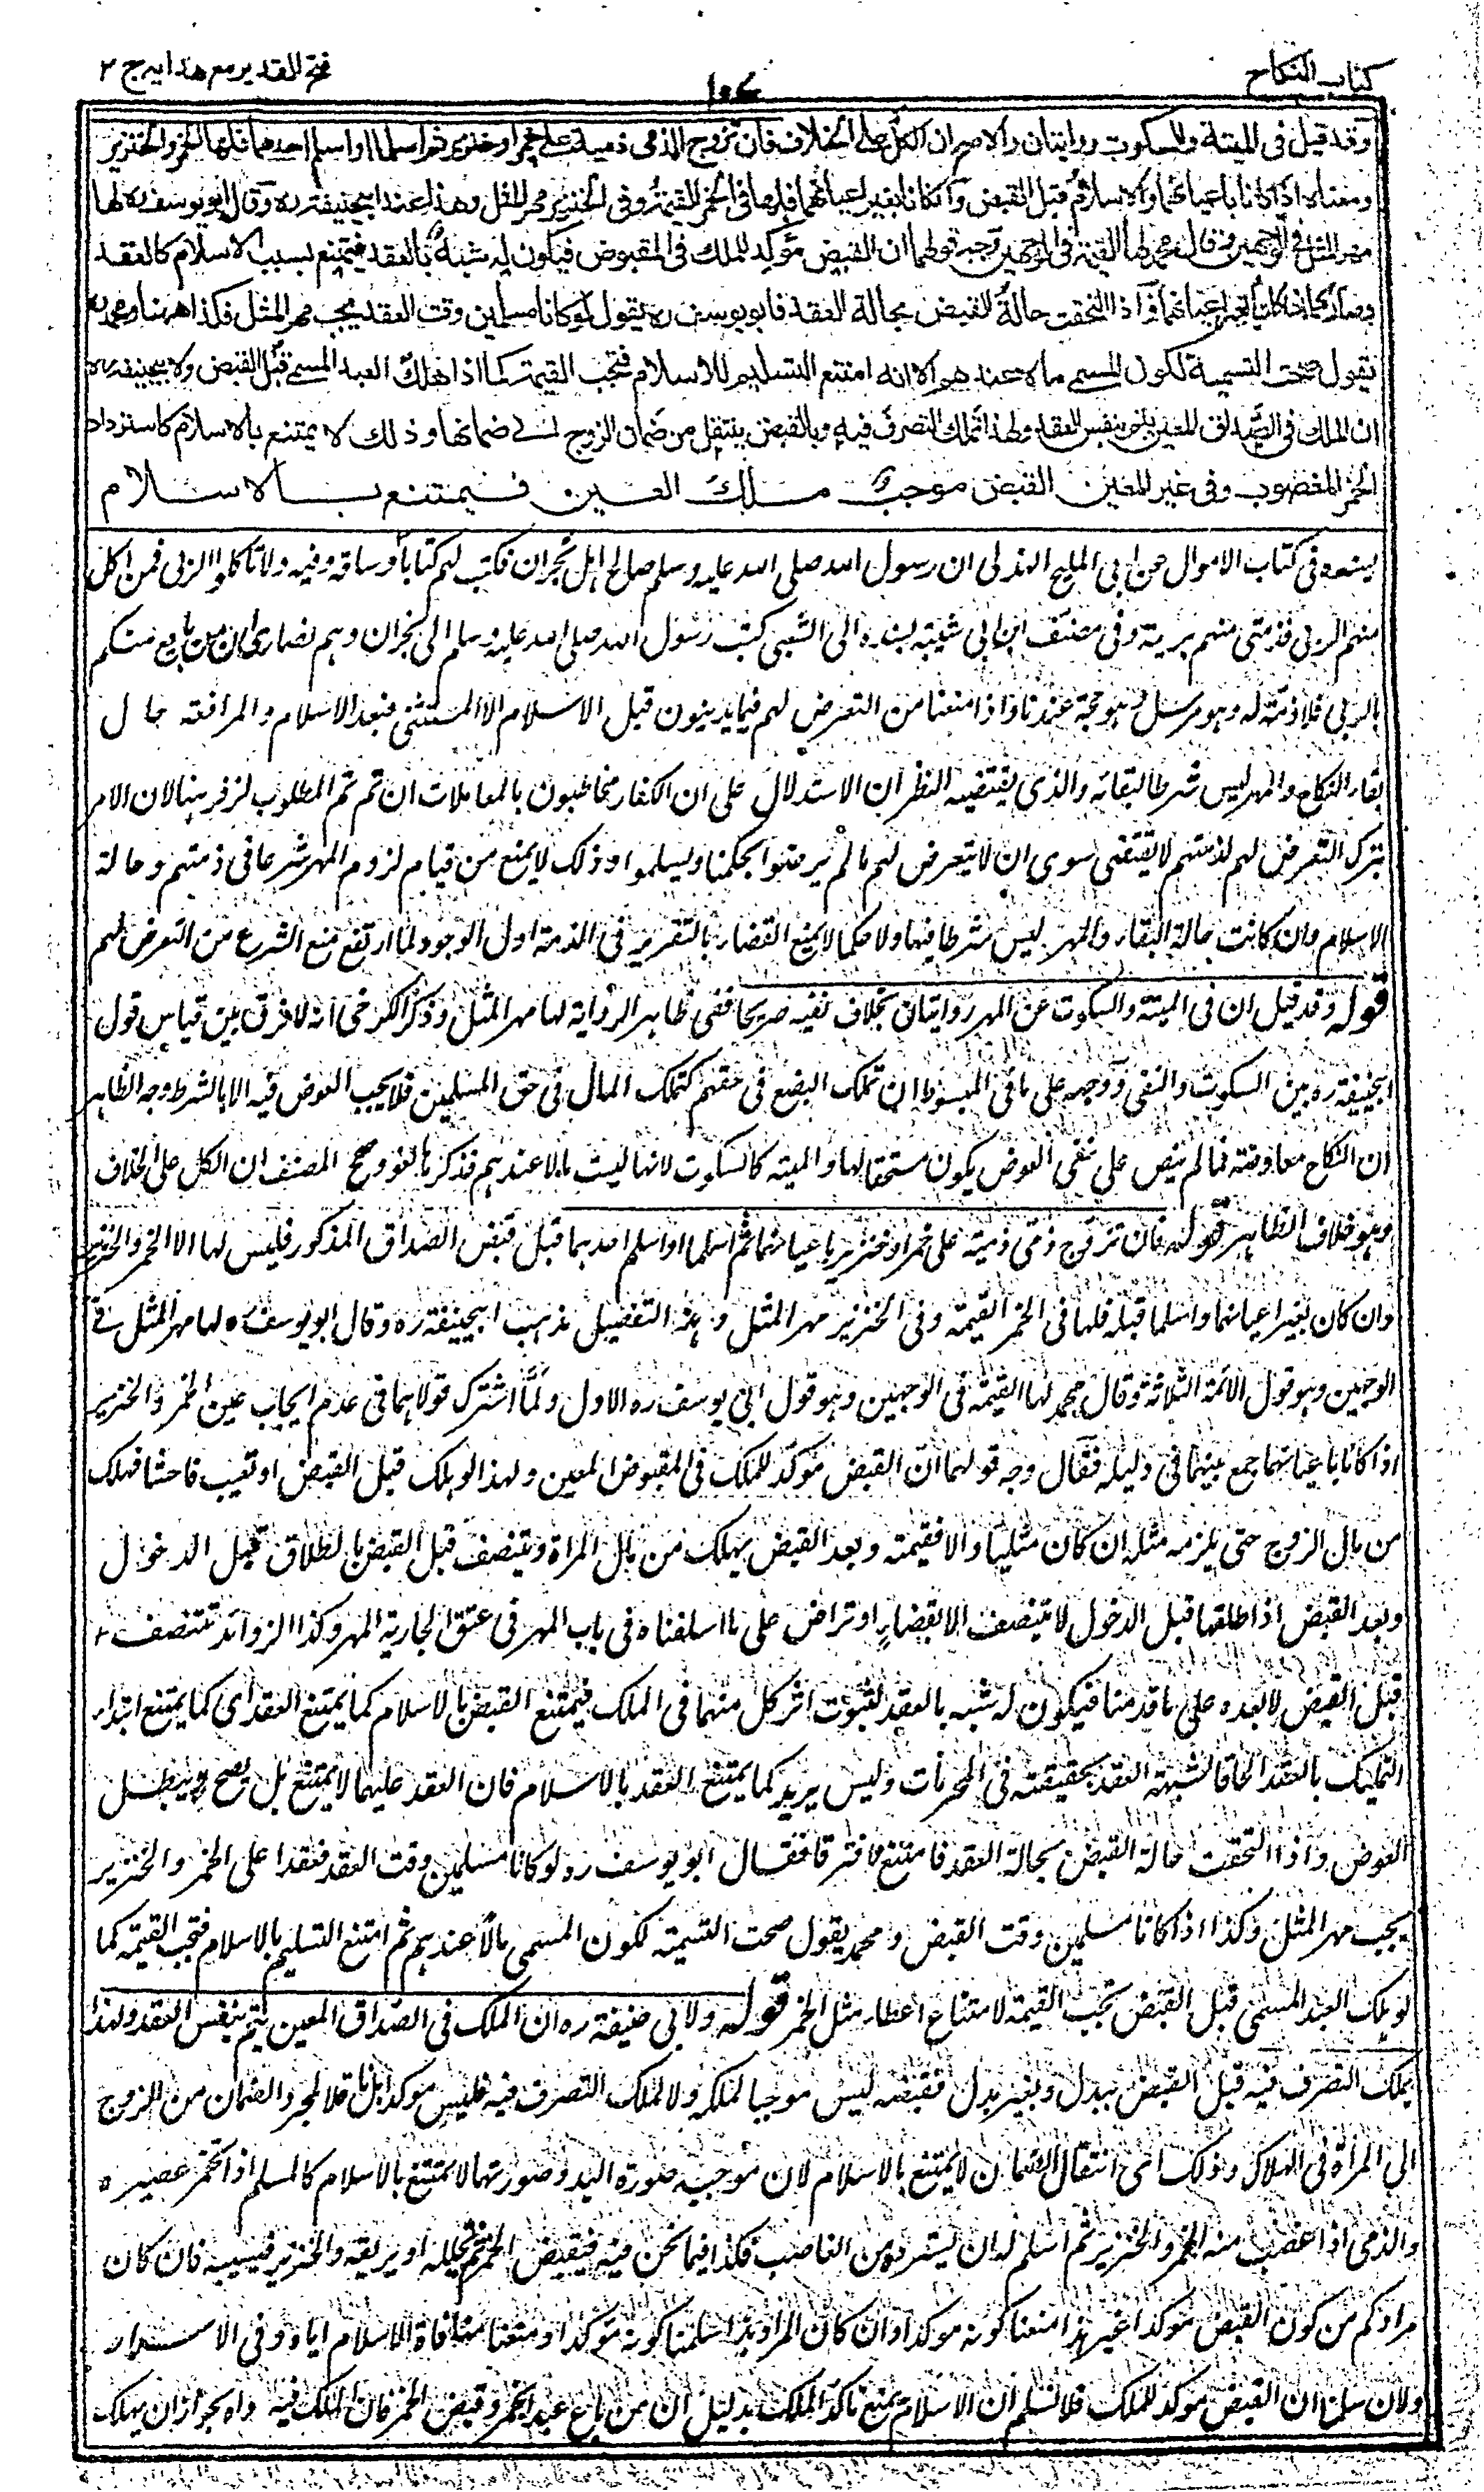 كتاب النكاح
١٠٧
فتح القدير مع هدايه ج ٢
وقد قيل في الميتة والسكوت روايتان والاصح ان الكل على الخلاف فان تزوج الذمي ذمية على خمر او خنزير ثم اسلما او اسلم احدهما فلها الخمر والخنزير
ومعناه اذا كانا باعيانهما والاسلام قبل القبض وان كانا بغير اعيانهما فلها في الخمر القيمة وفي الخنزير مهر المثل وهذا عند ابيحنيفة ره وقال ابو يوسف ره لها
مهر المثل في الوجهين وقال محمد لها القيمة في الوجهين وجه قولهما ان القبض مؤكد للملك في المقبوض فيكون له شبه بالعقد فيمتنع بسبب الاسلام كالعقد
وصار كما اذا كانا بغير اعيانهما واذا التحقت حالة القبض بحالة العقد فابو يوسف ره يقول لو كانا مسلمين وقت العقد يجب مهر المثل فكذا ههنا ومحمد ره
يقول صحت التسمية لكون المسمى مالا عندهم الا انه امتنع التسليم للاسلام فتجب القيمة كما اذا هلك العبد المسمى قبل القبض ولابيحنيفة ره
ان الملك في الصداق المعين يتم بنفس العقد ولهذا تملك التصرف فيه وبالقبض ينتقل من ضمان الزوج الى ضمانها وذلك لا يمتنع بالاسلام كاسترداد
الخمر المغصوب وفي غير المعين القبض موجب ملك العين فيمتنع بالاسلام
بسنده في كتاب الاموال عن ابي المليح الهذلي ان رسول الله صلى الله عليه وسلم صالح اهل نجران فكتب لهم كتابا وساقه وفيه ولا تاكلوا الربى فمن اكل
منهم الربى فذمتي منهم برية وفي مصنف ابن ابي شيبة بسنده الى الشعبي كتب رسول الله صلى الله عليه وسلم الى نجران وهم نصارى ان من بايع منكم
بالربى فلا ذمة له وهو مرسل وهو حجة عندنا واذا منعنا من التعرض لهم فيما يدينون قبل الاسلام الا المستثنى فبعد الاسلام والمرافعة حال
بقاء النكاح والمهر ليس شرطا لبقائه والذي يقتضيه النظر ان الاستدلال على ان الكفار مخاطبون بالمعاملات ان تم تم المطلوب لزفر هنا لان الامر
بترك التعرض لهم لذمتهم لا يقتضي سوى ان لا يتعرض لهم ما لم يرضوا بحكمنا ويسلموا وذلك لا يمنع من قيام لزوم المهر شرعا في ذمتهم وحالة
الاسلام وان كانت حالة البقاء والمهر ليس شرطا فيها ولا حكما لا يمنع القضاء بالتقرر في الذمة اول الوجود لما ارتفع منع الشرع من التعرض لهم
قوله وقد قيل ان في الميتة والسكوت عن المهر روايتان بخلاف نفيه صريحا ففي ظاهر الرواية لها مهر المثل وذكر الكرخي انه لا فرق بين قياس قول
ابيحنيفة ره بين السكوت والنفي ووجهه على ما في المبسوط ان تملك البضع في حقهم كتملك المال في حق المسلمين فلا يجب العوض فيه الا بالشرط وجه الظاهر
ان النكاح معاوضة فما لم ينص على نفي العوض يكون مستحقا لها والميتة كالسكوت لانها ليست مالا عندهم فذكرها لغو وصحح المصنف ان الكل على الخلاف
وهو خلاف الظاهر قوله فان تزوج ذمي ذمية على خمر او خنزير باعيانهما ثم اسلما او اسلم احدهما قبل قبض الصداق المذكور فليس لها الا الخمر والخنزير
وان كان بغير اعيانهما واسلما قبله فلها في الخمر القيمة وفي الخنزير مهر المثل وهذا التفصيل مذهب ابيحنيفة ره وقال ابو يوسف ره لها مهر المثل في
الوجهين وهو قول الائمة الثلاثة وقال محمد لها القيمة في الوجهين وهو قول ابي يوسف ره الاول ولما اشترك قولاهما في عدم ايجاب عين الخمر والخنزير
اذا كانا باعيانهما جمع بينهما في دليله فقال وجه قولهما ان القبض مؤكد للملك في المقبوض المعين ولهذا لو هلك قبل القبض او تعيب فاحشا فهلك
من مال الزوج حتى يلزمه مثله ان كان مثليا والا فقيمته وبعد القبض يهلك من مال المراة ويتنصف قبل القبض بالطلاق قبل الدخول
وبعد القبض اذا طلقها قبل الدخول لا يتنصف الا بقضاء او تراض على ما اسلفناه في باب المهر في عتق الجارية المهر وكذا الزوائد تتنصف
قبل القبض لا بعده على ما قدمنا فيكون له شبه بالعقد لثبوت اثر كل منهما في الملك فيمتنع القبض بالاسلام كما يمتنع العقد اى كما يمتنع ابتداء
التمليك بالعقد الحاقا لشبهة العقد بحقيقته في المحرمات وليس يريد كما يمتنع العقد بالاسلام فان العقد عليهما لا يمتنع بل يصح ويبطل
العوض واذا التحقت حالة القبض بحالة العقد فامتنع فافترقا فقال ابو يوسف ره لو كانا مسلمين وقت العقد فعقدا على الخمر والخنزير
يجب مهر المثل وكذا اذا كانا مسلمين وقت القبض ومحمد يقول صحت التسمية لكون المسمى مالا عندهم ثم امتنع التسليم بالاسلام فتجب القيمة كما
لو هلك العبد المسمى قبل القبض تجب القيمة لامتناع اعطاء مثل الخمر قوله ولابي حنيفة ره ان الملك في الصداق المعين يتم بنفس العقد ولهذا
يملك التصرف فيه قبل القبض ببدل وبغير بدل فقبضه ليس موجبا لملكه ولا لملك التصرف فيه فليس مؤكدا بل ناقلا لمجرد الضمان من الزوج
الى المراة في الهلاك وذلك اعني انتقال الضمان لا يمتنع بالاسلام لان موجبه صورة اليد وصورتها لا تمتنع بالاسلام كالمسلم اذا تخمر عصيره
والذمي اذا غصب منه الخمر والخنزير ثم اسلم له ان يسترده من الغاصب فكذا فيما نحن فيه فيقبض الخمر فيخلله او يريقه والخنزير فيسيبه فان كان
مرادكم من كون القبض مؤكدا غير هذا منعنا كونه مؤكدا وان كان المراد هذا سلمنا كونه مؤكدا ومنعنا منافاة الاسلام اياه وفي الاسرار
ولان سلمنا ان القبض مؤكد للملك فلا نسلم ان الاسلام يمنع تاكد الملك بدليل ان من باع عبدا بخمر وقبض الخمر فان الملك فيه واه بجواز ان يهلك